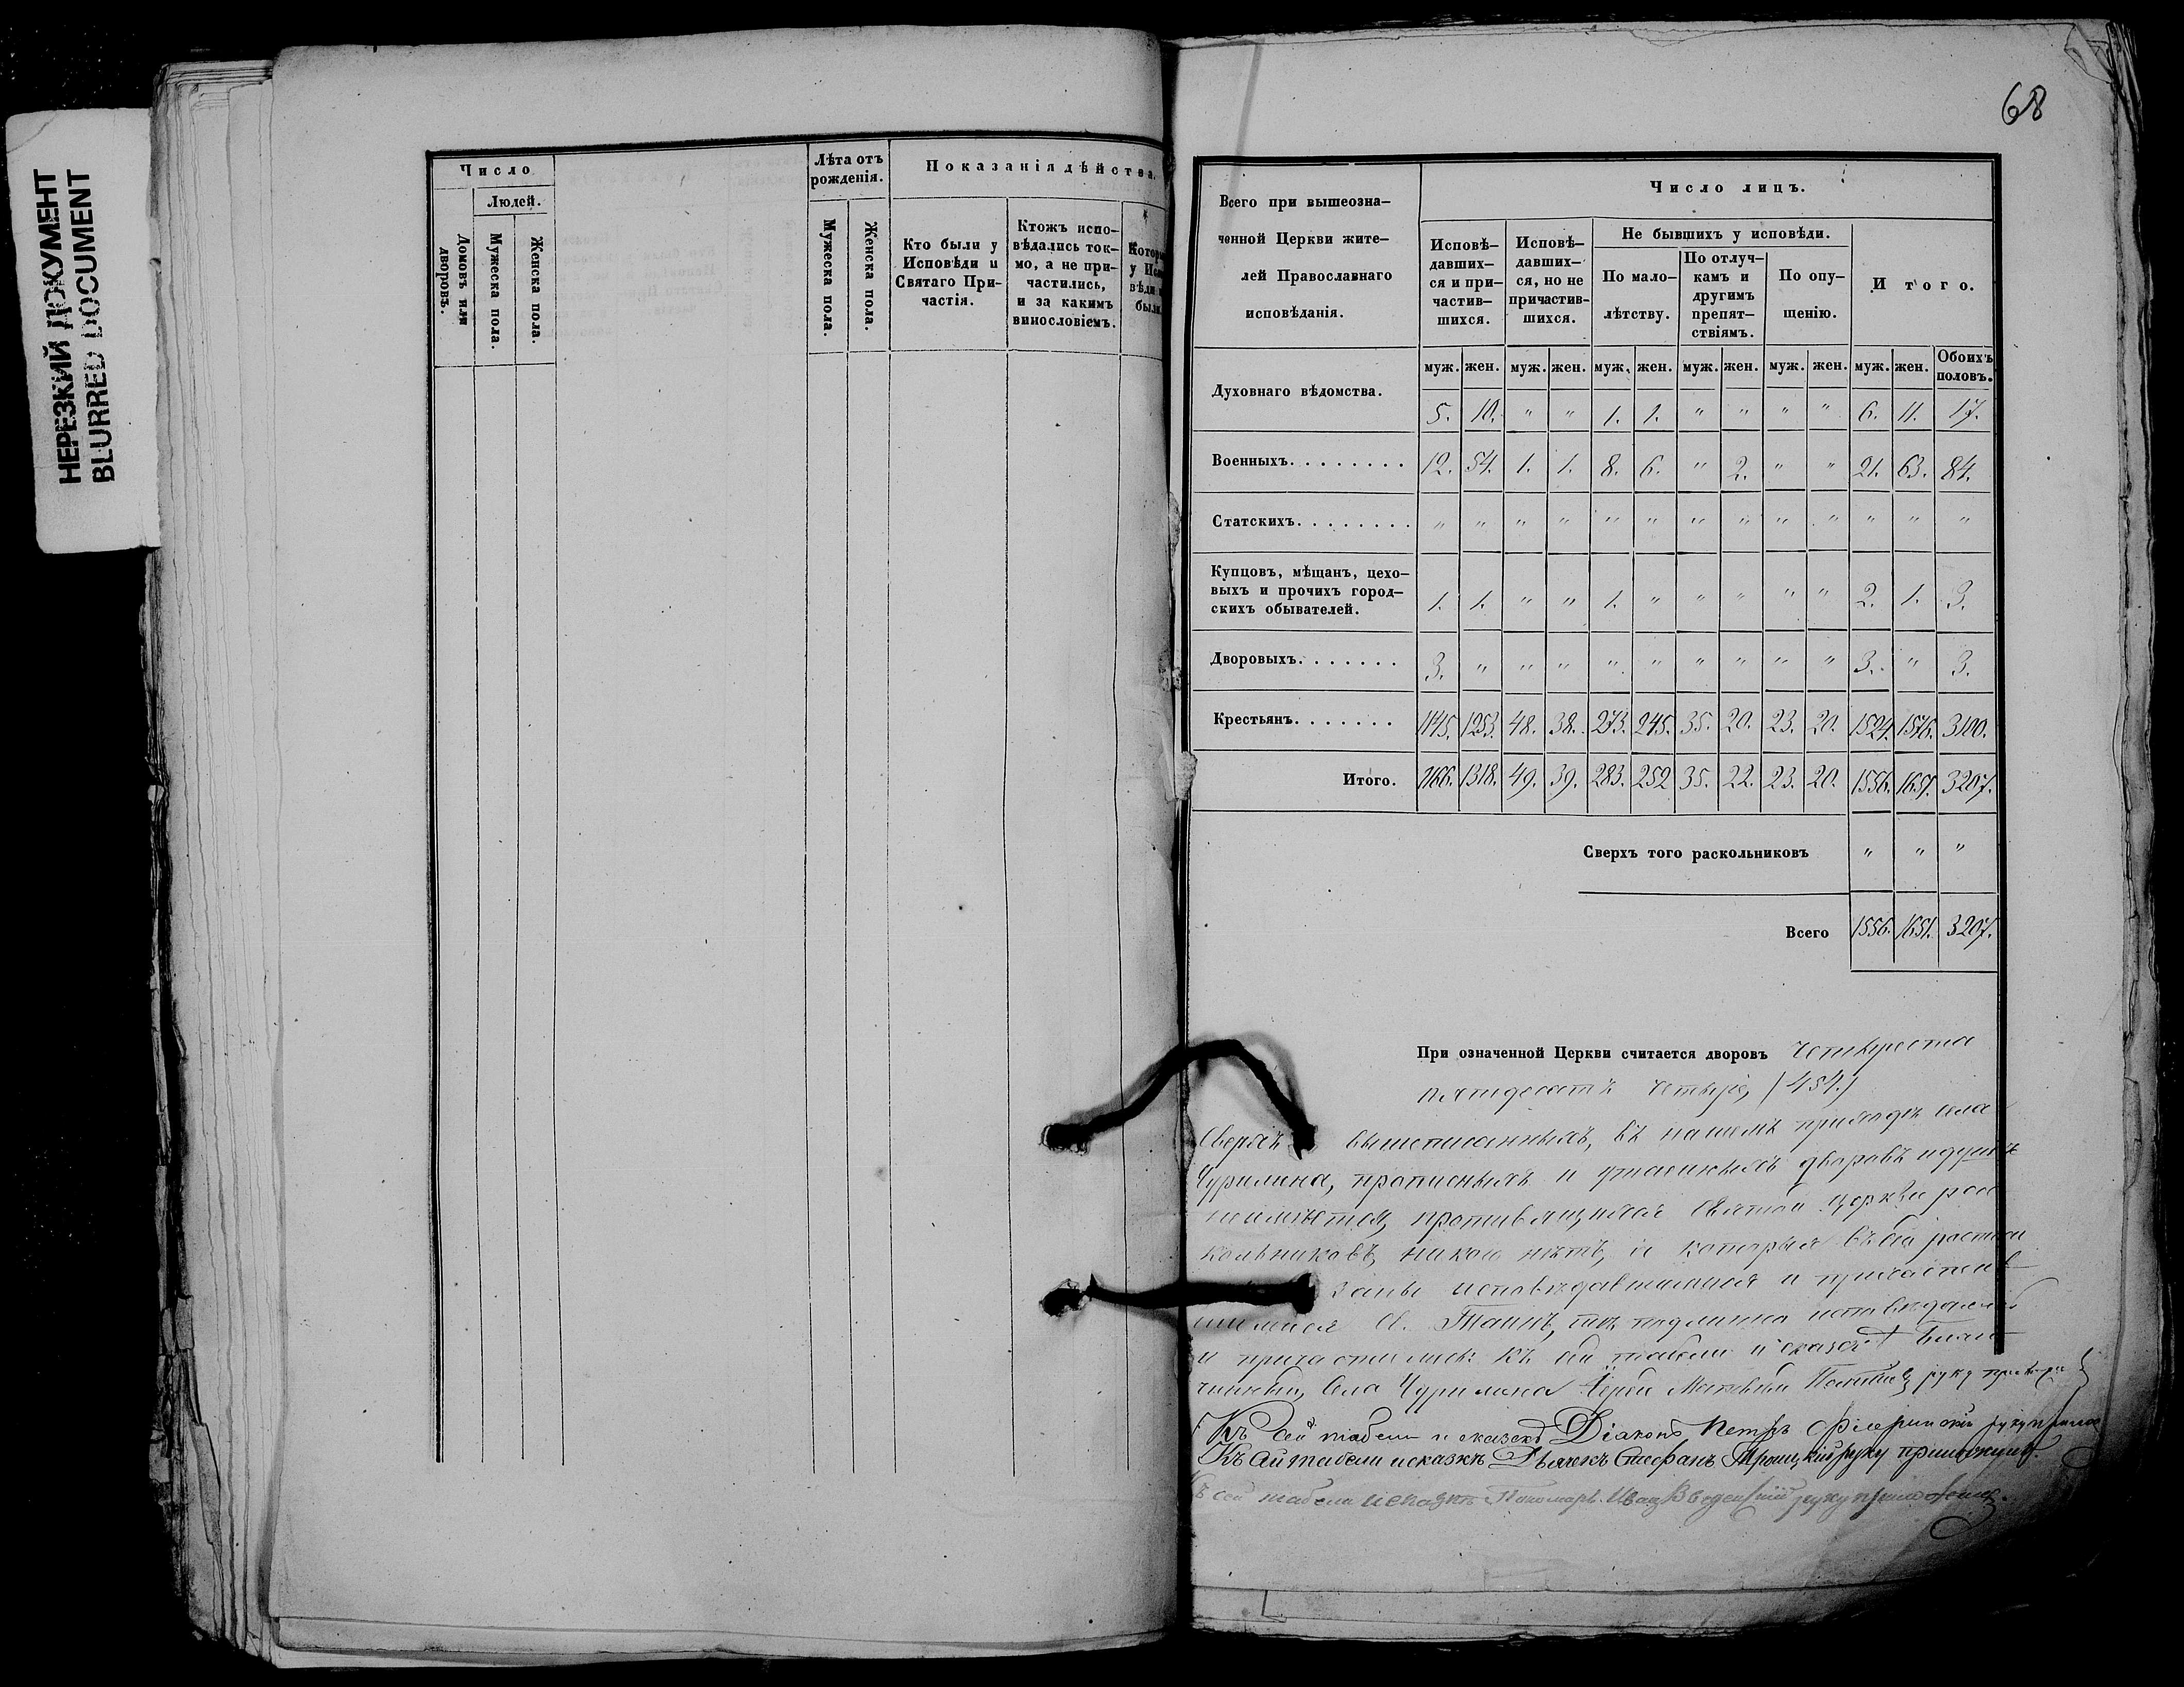 НЕРЕЗКИЙ ДОКУМЕНТ
BLURRED DOCUMENT
Число
Людей.
Домовъ или дворовъ.
Мужеска пола.
Женска пола.
Лѣта отъ рожденія.
Мужеска пола.
Женска пола.
Показанія дѣйства.
Кто были у Исповѣди и Святаго Причастія.
Ктожъ исповѣдались токмо, а не причастились, и за какимъ винословіемъ.
68
Всего при вышеозначенной Церкви жителей Православнаго исповѣданія.
Число лицъ.
Исповѣдавшихся и причастившихся.
Исповѣдавшихся, но не причастившихся.
Не бывшихъ у исповѣди.
По малолѣтству.
По отлучкамъ и другимъ препятствіямъ.
По опущенію.
Итого.
муж. жен. муж. жен. муж. жен. муж. жен. муж. жен. муж. жен. Обоихъ половъ.
Духовнаго вѣдомства. 5. 10. " " 1. 1. " " " " 6. 11. 17.
Военныхъ........ 12. 54. 1. 1. 8. 6. " 2. " " 21. 63. 84.
Статскихъ........ " " " " " " " " " " " " "
Купцовъ, мѣщанъ, цехо-
выхъ и прочихъ город-
скихъ обывателей. 1. 1. " " 1. " " " " " 2. 1. 3.
Дворовыхъ....... 3. " " " " " " " " " 3. " 3.
Крестьянъ....... 1145. 1253. 48. 38. 273. 245. 35. 20. 23. 20. 1524. 1576. 3100.
Итого. 1166. 1318. 49. 39. 283. 252 35. 22. 23. 20. 1556. 1651. 3207.
Сверхъ того раскольниковъ " " "
Всего 1556. 1651. 3207.
При означенной Церкви считается дворовъ четыреста
пятдесятъ четыре, /454./
Сверхъ вышеписанныхъ, въ нашемъ приходѣ села
Чурилина, прописныхъ и утаенныхъ дворовъ и душъ
неимѣется, противящихся святой церкви рас
кольниковъ, никого нѣтъ, и которыя въ сей росписи
заны исповѣдавшимися и причастив
шимися Св. Таинъ, тѣ подлинно исповѣдались
и причастились: къ сей табели и сказкѣ Благо
чинный, Села Чурилина Іерей Матвѣй руку приложилъ
Къ сей табели и сказкѣ Діаконъ Петръ руку приложи
Къ сей табели и сказкѣ Дьячекъ Стефанъ Троицкій руку приложилъ.
ъ сей табели и сказкѣ Пономарь Иванъ Введенскій руку приложилъ.